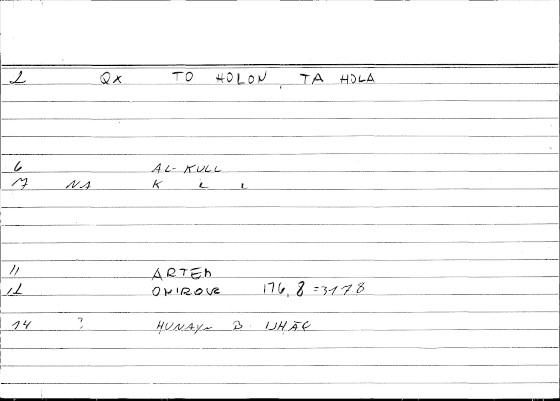 1 QX TO HOLON, TA HOLA
6 AL-KULL
7 NA K L L
11 ARTEM
12 ONIROCR 176, 8 = 317 8
14 ? HUNAYN B. ISHĀQ